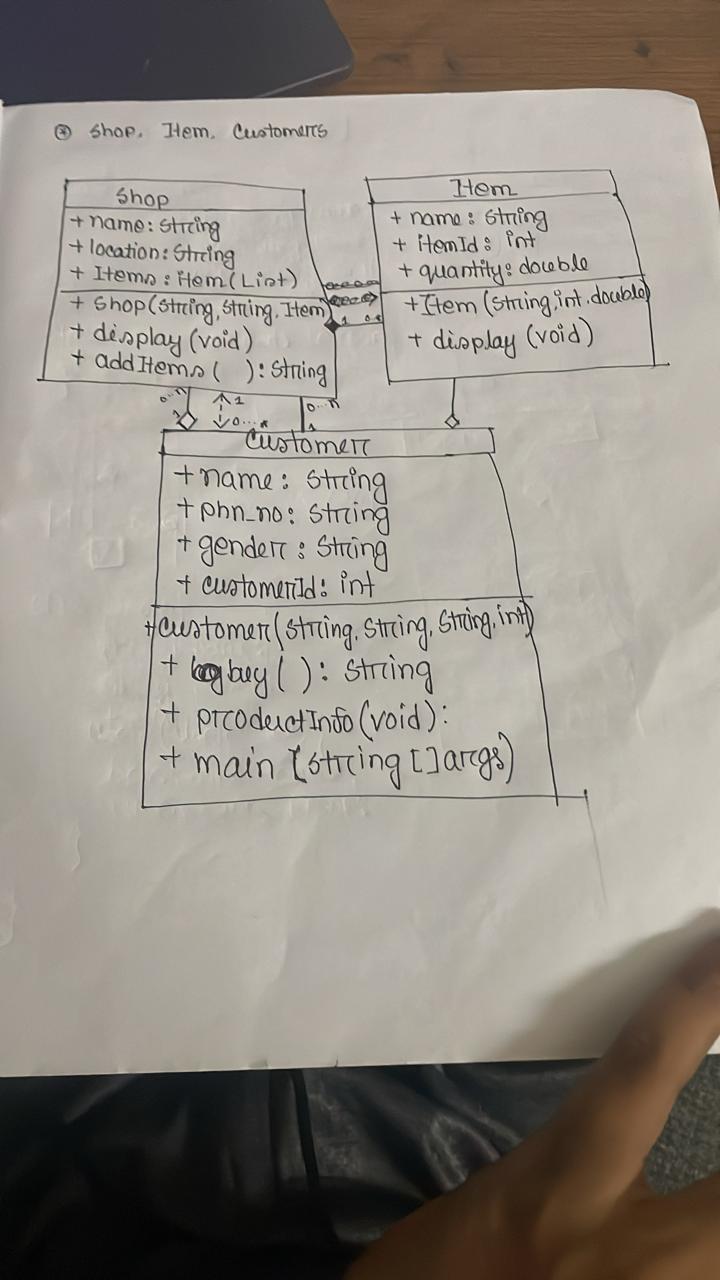 * Shop, Item, Customers
Shop
+ name: String
+ location: String
+ Items: item(List)
+ Shop(String, String, Item)
+ display (void)
+ addItems ( ): String
Item
+ name: String
+ itemId: int
+ quantity: double
+Item (String, int, double)
+ display (void)
1
0..n
1
0...*
0..n
1
Customer
+ name: String
+ phn_no: String
+ gender: String
+ customerId: int
+customer(String, String, String, int)
+ buy( ): String
+ productInfo(void):
+ main [String []args)